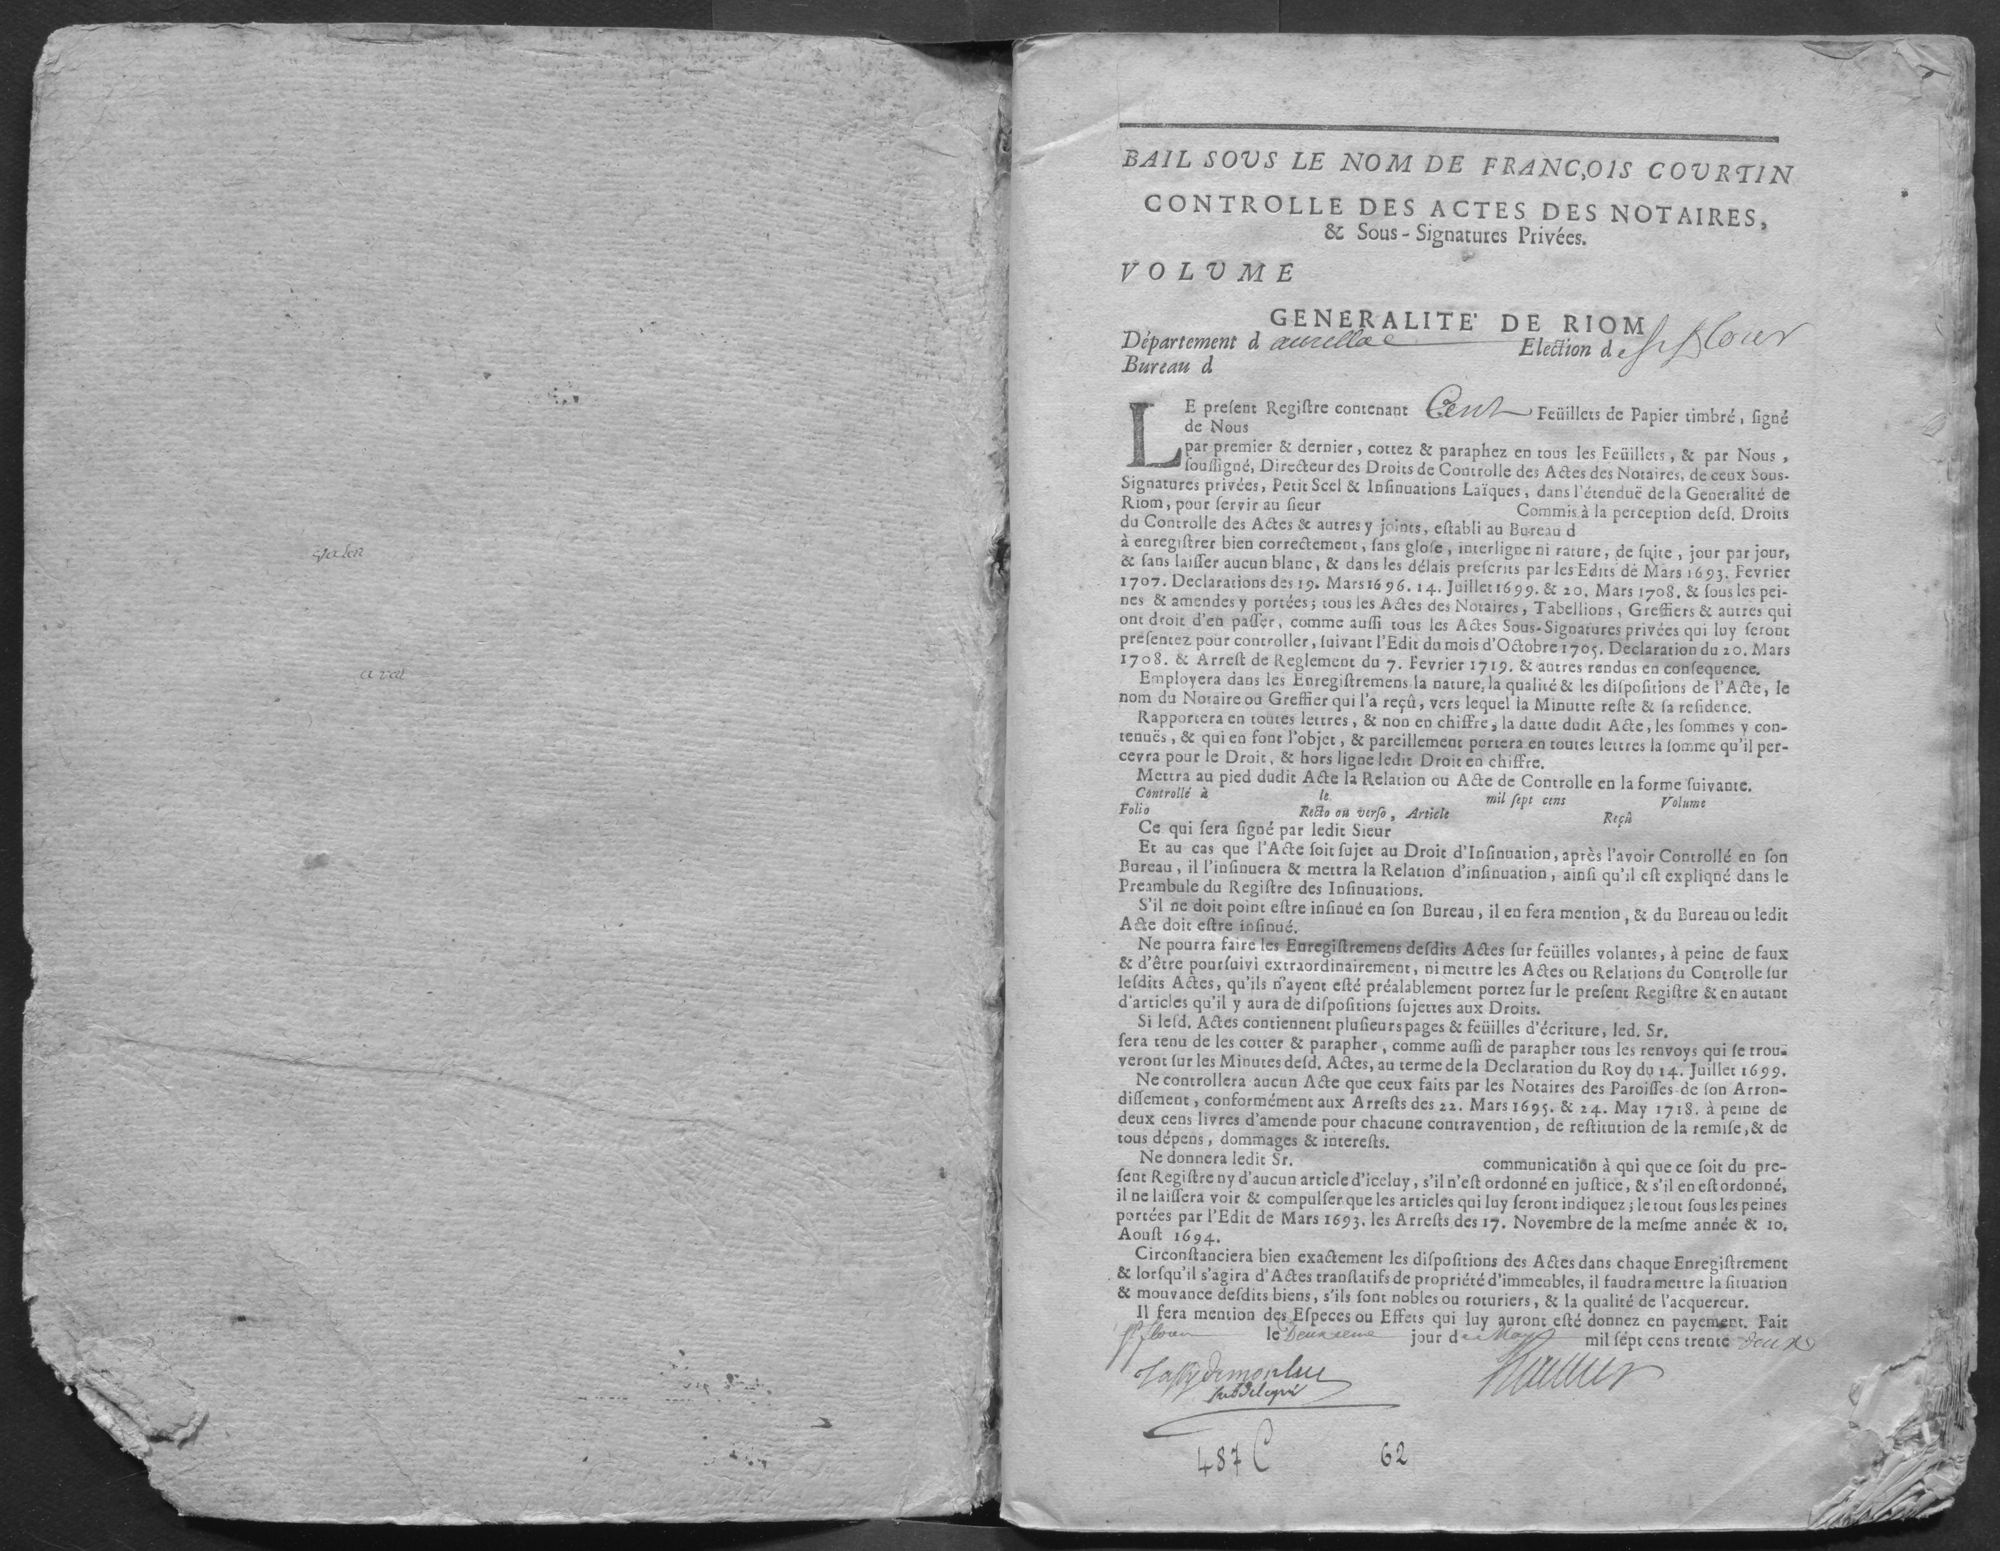 BAIL SOUS LE NOM DE FRANÇOIS COURTIN
CONTROLLE DES ACTES DES NOTAIRES,
& Sous-Signatures Privées.
VOLUME
GENERALITE' DE RIOM
Département d aurillac Election de St flour
Bureau d
LE preſent Regiſtre contenant Cent Feüillets de Papier timbré, ſigné
de Nous
par premier & dernier, cottez & paraphez en tous les Feüillets, & par Nous,
ſouſſigné, Directeur des Droits de Controlle des Actes des Notaires, de ceux Sous-
Signatures privées, Petit Scel & Inſinuations Laïques, dans l'étenduë de la Generalité de
Riom, pour ſervir au ſieur Commis à la perception deſd. Droits
du Controlle des Actes & autres y joints, eſtabli au Bureau d
à enregiſtrer bien correctement, ſans gloſe, interligne ni rature, de ſuite, jour par jour,
& ſans laiſſer aucun blanc, & dans les délais preſcrits par les Edits de Mars 1693. Fevrier
1707. Declarations des 19. Mars 1696. 14. Juillet 1699. & 20. Mars 1708. & ſous les pei-
nes & amendes y portées; tous les Actes des Notaires, Tabellions, Greffiers & autres qui
ont droit d'en paſſer, comme auſſi tous les Actes Sous-Signatures privées qui luy ſeront
preſentez pour controller, ſuivant l'Edit du mois d'Octobre 1705. Declaration du 20. Mars
1708. & Arreſt de Reglement du 7. Fevrier 1719. & autres rendus en conſequence.
Employera dans les Enregiſtremens la nature, la qualité & les diſpoſitions de l'Acte, le
nom du Notaire ou Greffier qui l'a reçû, vers lequel la Minutte reſte & ſa reſidence.
Rapportera en toutes lettres, & non en chiffre, la datte dudit Acte, les ſommes y con-
tenuës, & qui en font l'objet, & pareillement portera en toutes lettres la ſomme qu'il per-
cevra pour le Droit, & hors ligne ledit Droit en chiffre.
Mettra au pied dudit Acte la Relation ou Acte de Controlle en la forme ſuivante.
Controllé à le mil ſept cens Volume
Folio Recto ou verſo, Article Reçû
Ce qui ſera ſigné par ledit Sieur
Et au cas que l'Acte ſoit ſujet au Droit d'Inſinuation, après l'avoir Controllé en ſon
Bureau, il l'inſinuera & mettra la Relation d'inſinuation, ainſi qu'il eſt expliqué dans le
Preambule du Regiſtre des Inſinuations.
S'il ne doit point eſtre inſinué en ſon Bureau, il en fera mention, & du Bureau ou ledit
Acte doit eſtre inſinué.
Ne pourra faire les Enregiſtremens deſdits Actes ſur feüilles volantes, à peine de faux
& d'être pourſuivi extraordinairement, ni mettre les Actes ou Relations du Controlle ſur
leſdits Actes, qu'ils n'ayent eſté préalablement portez ſur le preſent Regiſtre & en autant
d'articles qu'il y aura de diſpoſitions ſujettes aux Droits.
Si leſd. Actes contiennent pluſieurs pages & feüilles d'écriture, led. Sr.
ſera tenu de les cotter & parapher, comme auſſi de parapher tous les renvoys qui ſe trou-
veront ſur les Minutes deſd. Actes, au terme de la Declaration du Roy du 14. Juillet 1699.
Ne controllera aucun Acte que ceux faits par les Notaires des Paroiſſes de ſon Arron-
diſſement, conformément aux Arreſts des 22. Mars 1695. & 24. May 1718. à peine de
deux cens livres d'amende pour chacune contravention, de reſtitution de la remiſe, & de
tous dépens, dommages & intereſts.
Ne donnera ledit Sr. communication à qui que ce ſoit du pre-
ſent Regiſtre ny d'aucun article d'iceluy, s'il n'eſt ordonné en juſtice, & s'il en eſt ordonné,
il ne laiſſera voir & compulſer que les articles qui luy ſeront indiquez; le tout ſous les peines
portées par l'Edit de Mars 1693. les Arreſts des 17. Novembre de la meſme année & 10.
Aouſt 1694.
Circonſtanciera bien exactement les diſpoſitions des Actes dans chaque Enregiſtrement
& lorſqu'il s'agira d'Actes tranſlatifs de propriété d'immeubles, il faudra mettre la ſituation
& mouvance deſdits biens, s'ils ſont nobles ou roturiers, & la qualité de l'acquereur.
Il fera mention des Eſpeces ou Effets qui luy auront eſté donnez en payement. Fait
St flour le Deuxieme jour de May mil ſept cens trente deux
ſubdelegué
487 C 62